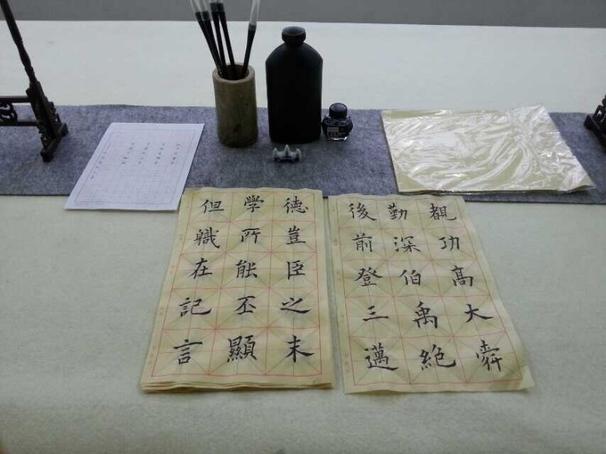 覩功高大舜
勤深伯禹絕
後前登三邁
德豈臣之末
學所能丕顯
但職在記言